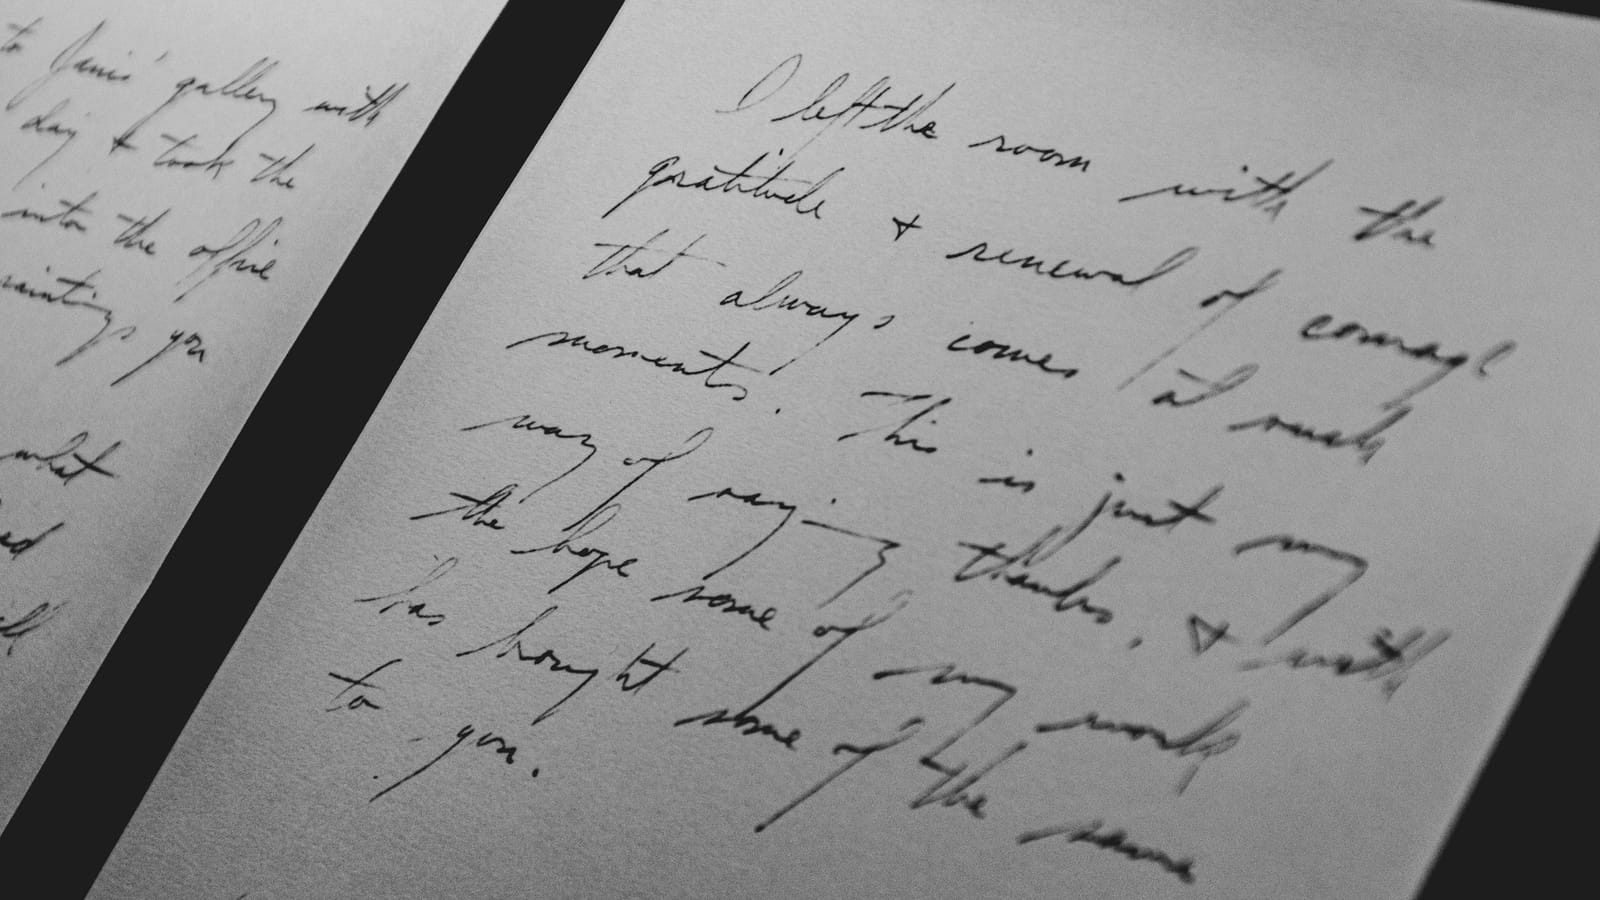 to Janis' gallery with
day & took the
into the office
paintings you
what
ed
I left the room with the
gratitude & renewal of courage
that always comes at such
moments. This is just my
way of saying thanks, & with
the hope some of my work
has brought some of the same
to you.